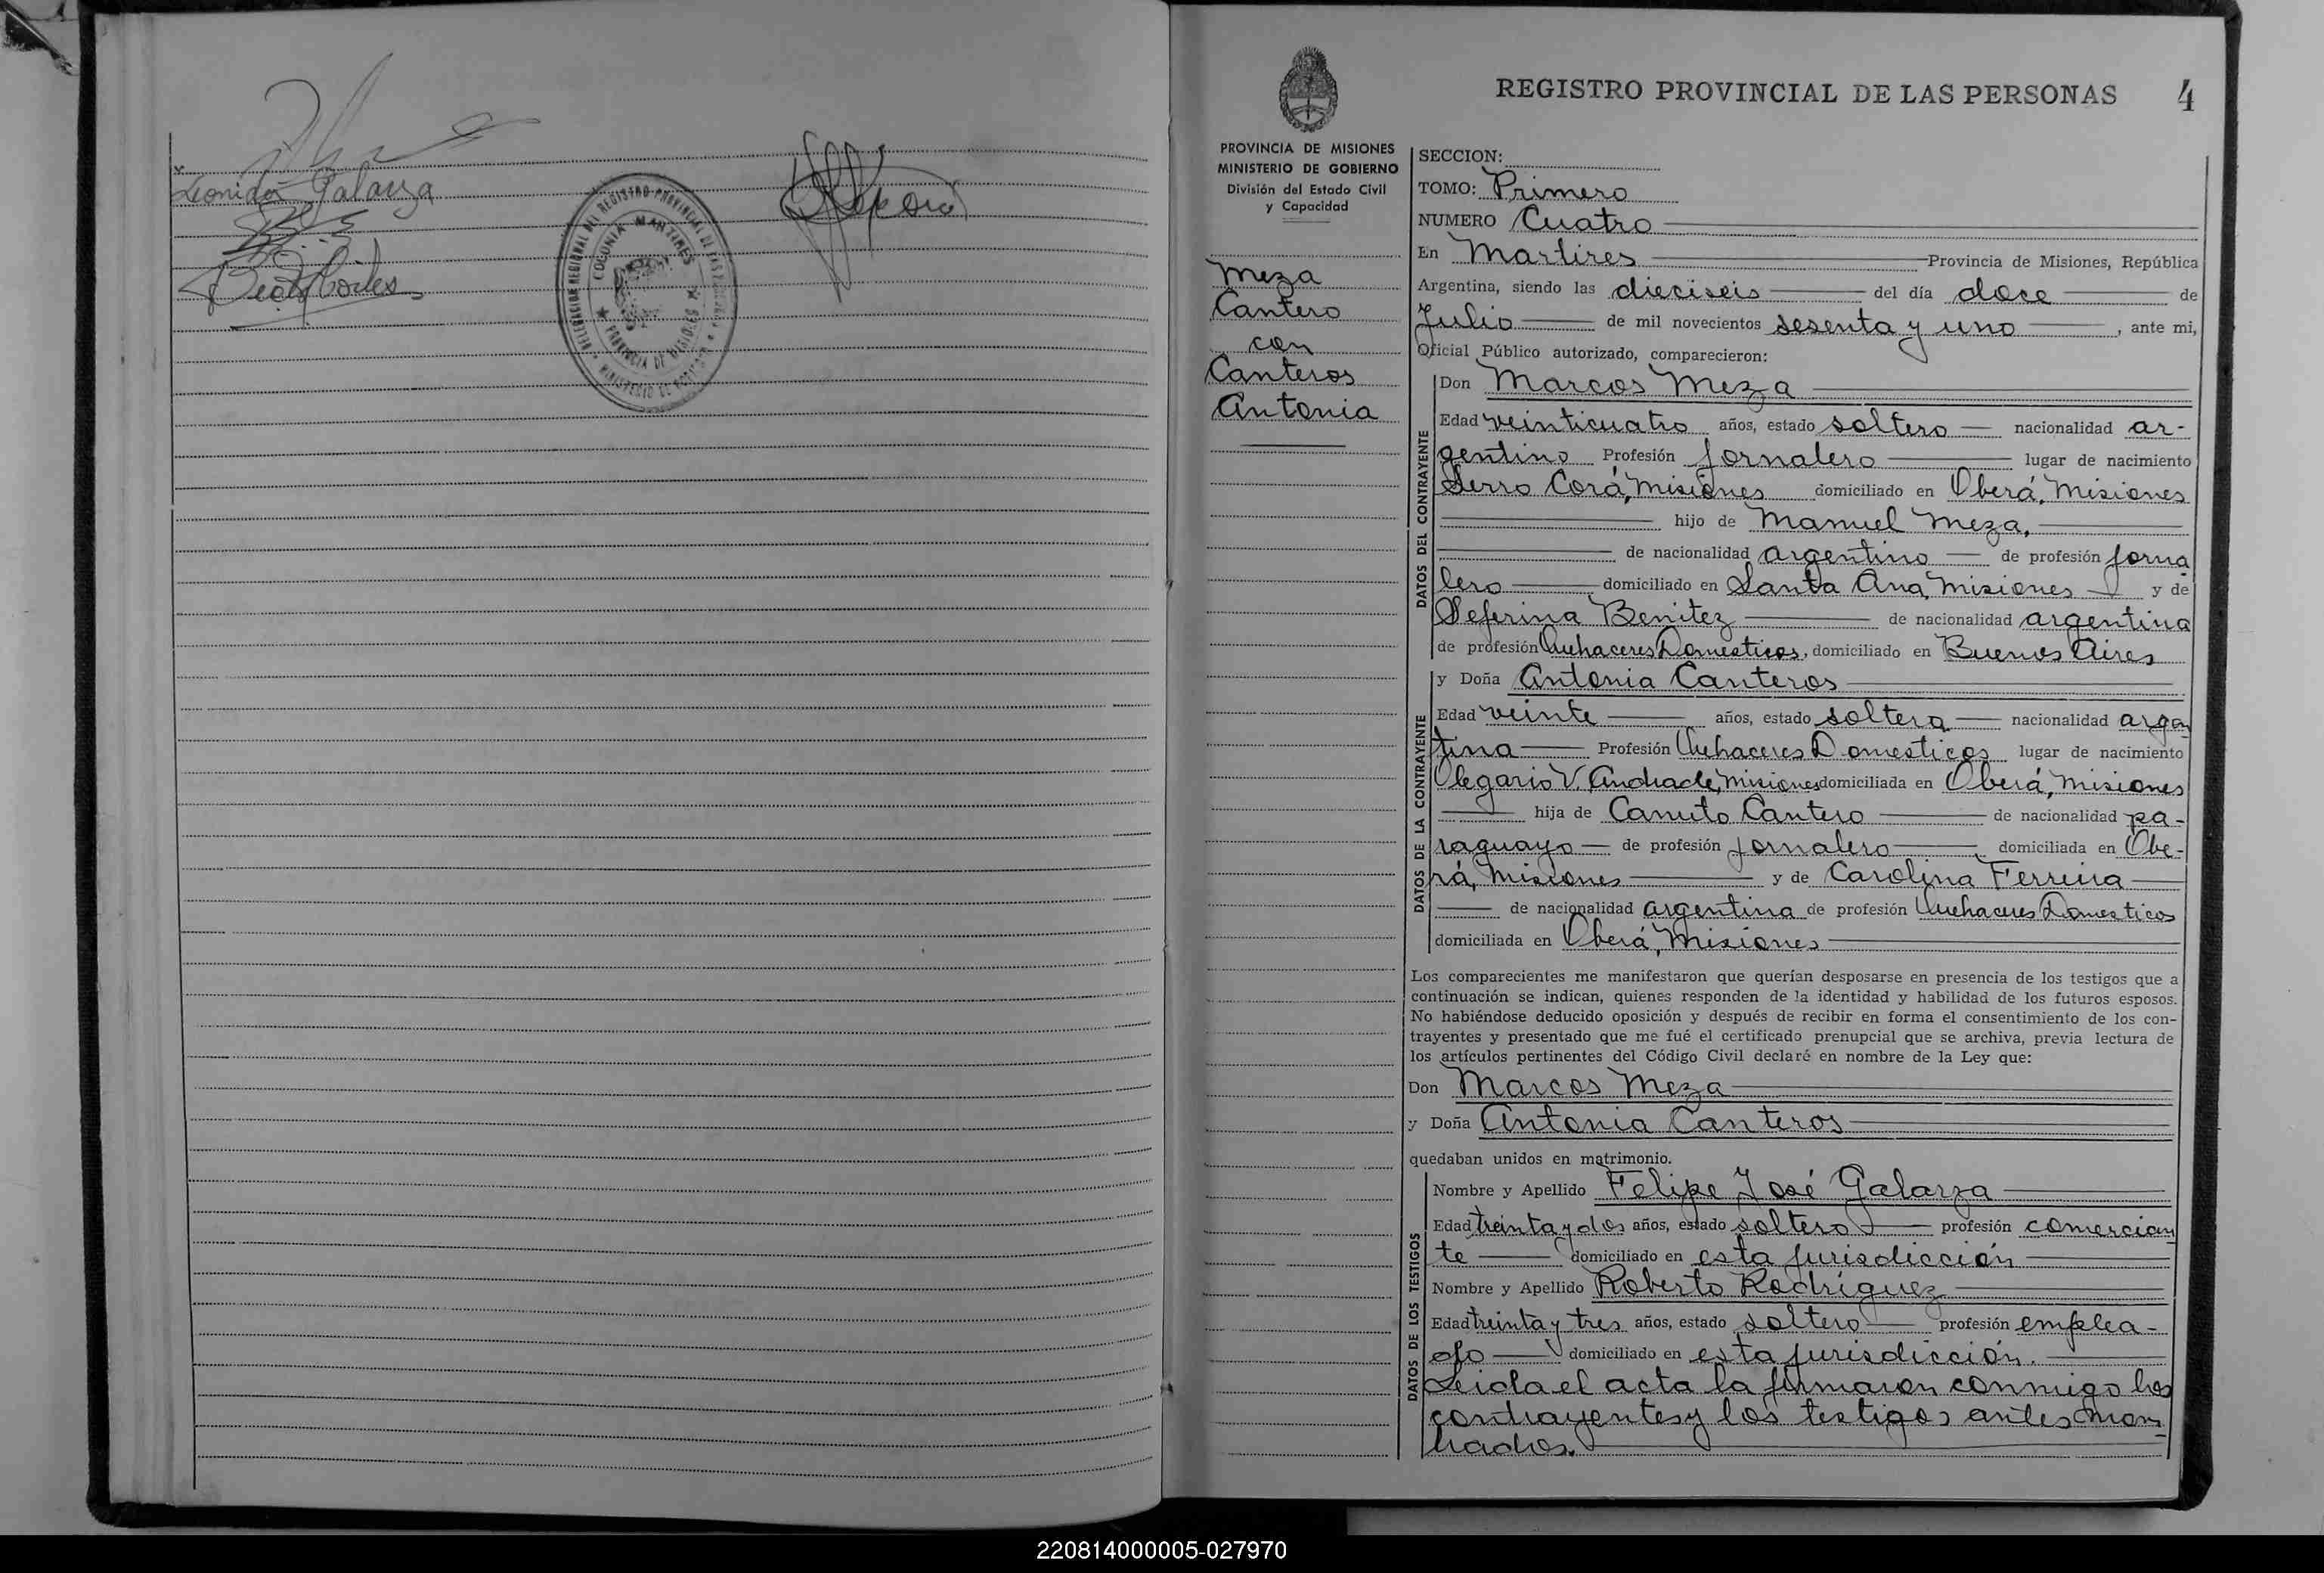 Leonida Galarza
DELEGACION REGIONAL DEL REGISTRO PROVINCIAL DE LAS PERSONAS
COLONIA MARTIRES
PROVINCIA DE MISIONES
MINISTERIO DE
REGISTRO PROVINCIAL DE LAS PERSONAS 4
PROVINCIA DE MISIONES
MINISTERIO DE GOBIERNO
División del Estado Civil
y Capacidad
Meza
Cantero
con
Canteros
Antonia
SECCION:
TOMO: Primero
NUMERO Cuatro
En Martires Provincia de Misiones, República
Argentina, siendo las dieciseis del día doce de
Julio de mil novecientos sesenta y uno, ante mi,
Oficial Público autorizado, comparecieron:
DATOS DEL CONTRAYENTE
Don Marcos Meza
Edad veinticuatro años, estado soltero nacionalidad ar-
gentino Profesión Jornalero lugar de nacimiento
Serro Corá, Misiones domiciliado en Oberá, Misiones
hijo de Manuel Meza,
de nacionalidad argentino de profesión jorna
lero domiciliado en Santa Ana, Misiones y de
Seferina Benitez de nacionalidad argentina
de profesión Quehaceres Domesticos, domiciliado en Buenos Aires
DATOS DE LA CONTRAYENTE
y Doña Antonia Canteros
Edad veinte años, estado soltera nacionalidad argen
tina Profesión Quehaceres Domesticos lugar de nacimiento
Olegario V. Andrade, Misiones domiciliada en Oberá, Misiones
hija de Canuto Cantero de nacionalidad pa-
raguayo de profesión jornalero, domiciliada en Obe-
rá, Misiones y de Carolina Ferreira
de nacionalidad argentina de profesión Quehaceres Domesticos
domiciliada en Oberá, Misiones
Los comparecientes me manifestaron que querían desposarse en presencia de los testigos que a
continuación se indican, quienes responden de la identidad y habilidad de los futuros esposos.
No habiéndose deducido oposición y después de recibir en forma el consentimiento de los con-
trayentes y presentado que me fué el certificado prenupcial que se archiva, previa lectura de
los artículos pertinentes del Código Civil declaré en nombre de la Ley que:
Don Marcos Meza
y Doña Antonia Canteros
quedaban unidos en matrimonio.
DATOS DE LOS TESTIGOS
Nombre y Apellido Felipe José Galarza
Edad treinta y dos años, estado soltero profesión comercian
te domiciliado en esta jurisdicción
Nombre y Apellido Roberto Rodríguez
Edad treinta y tres años, estado soltero profesión emplea-
do domiciliado en esta jurisdicción.
Leida el acta la firmaron conmigo los
contrayentes y los testigos antes nom
brados.
220814000005-027970